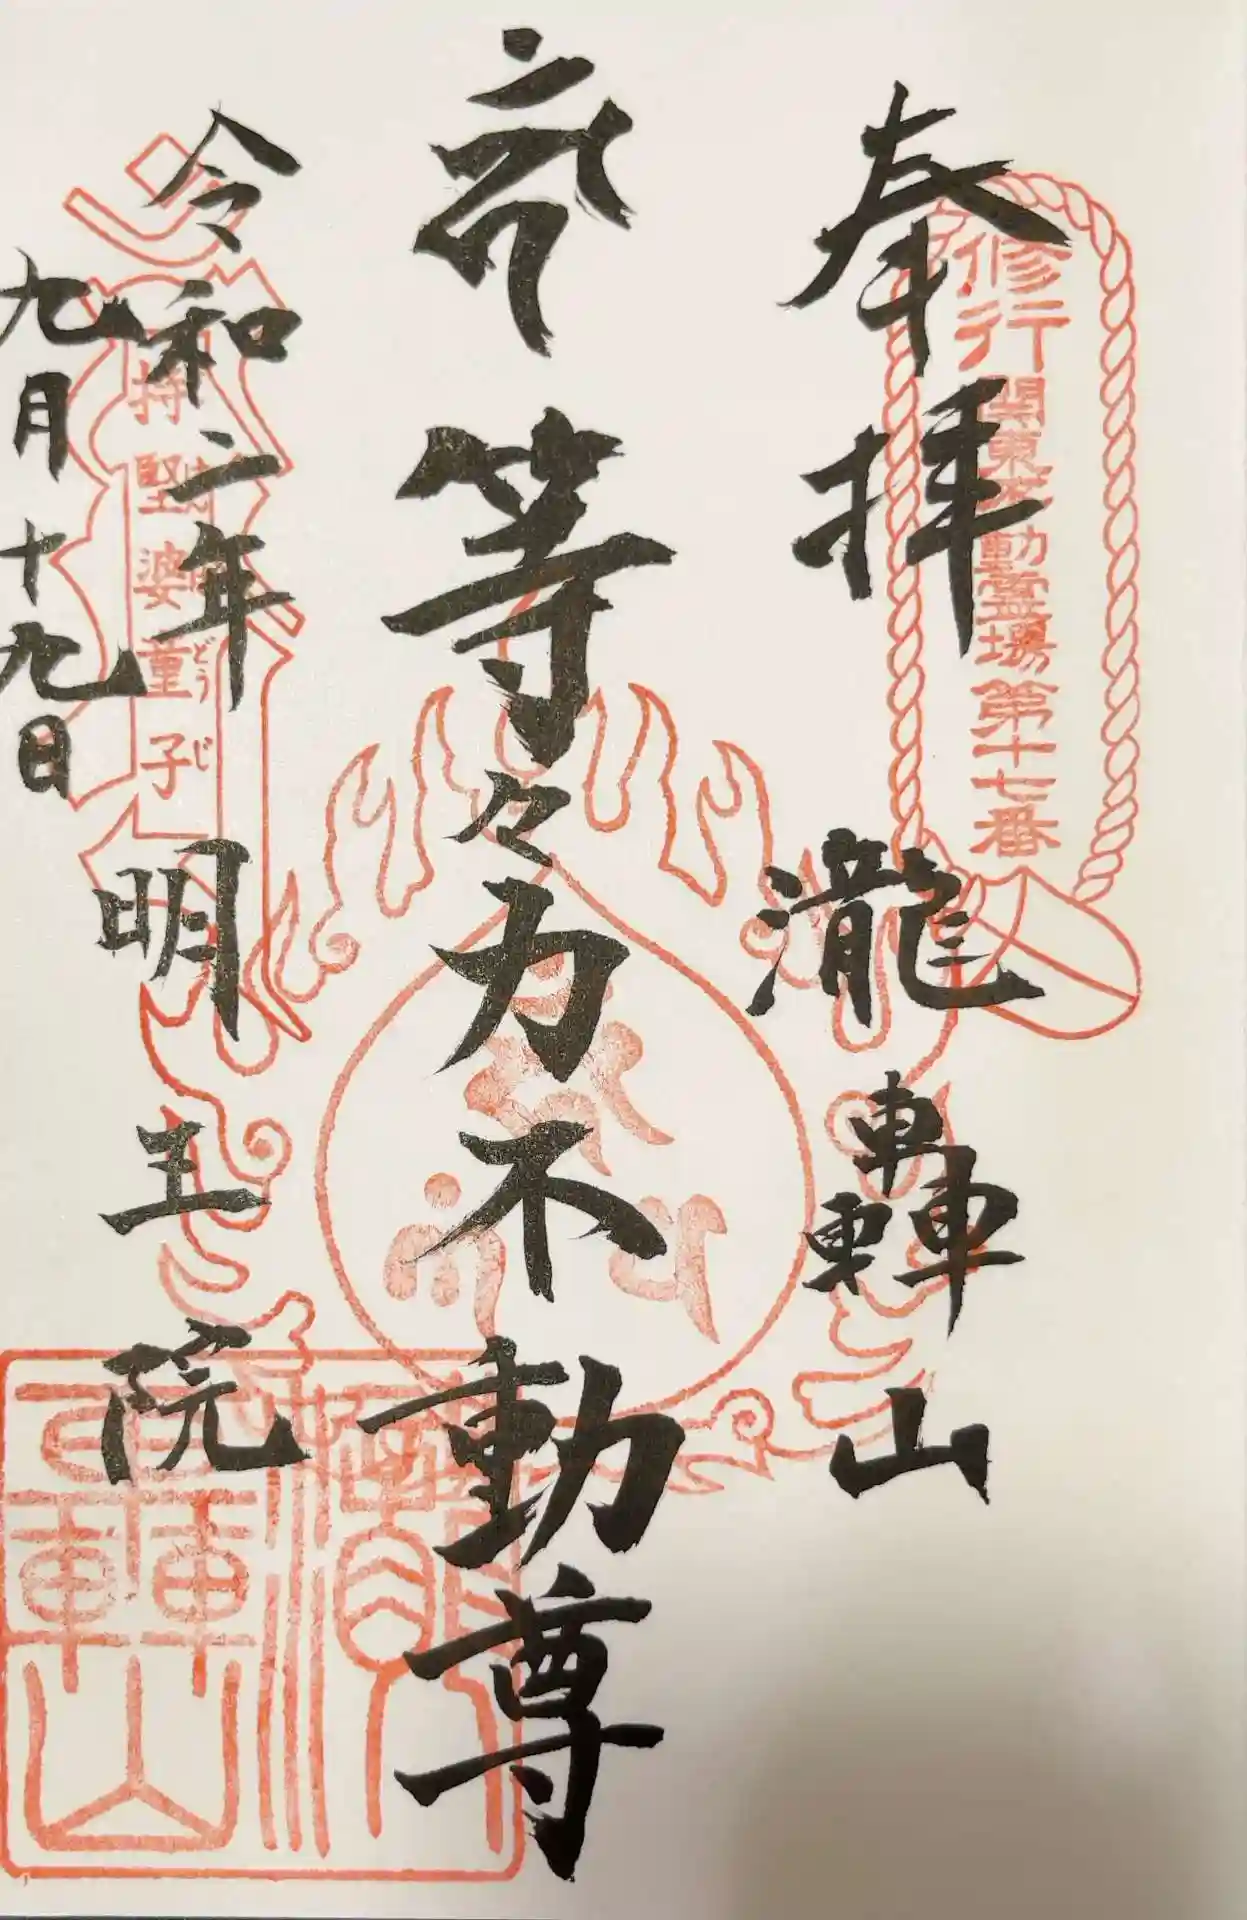 奉拝
修行関東不動霊場第十七番
瀧轟山
等々力不動尊
令和二年
九月十九日
持堅婆童子
どうじ
明王院
瀧轟山